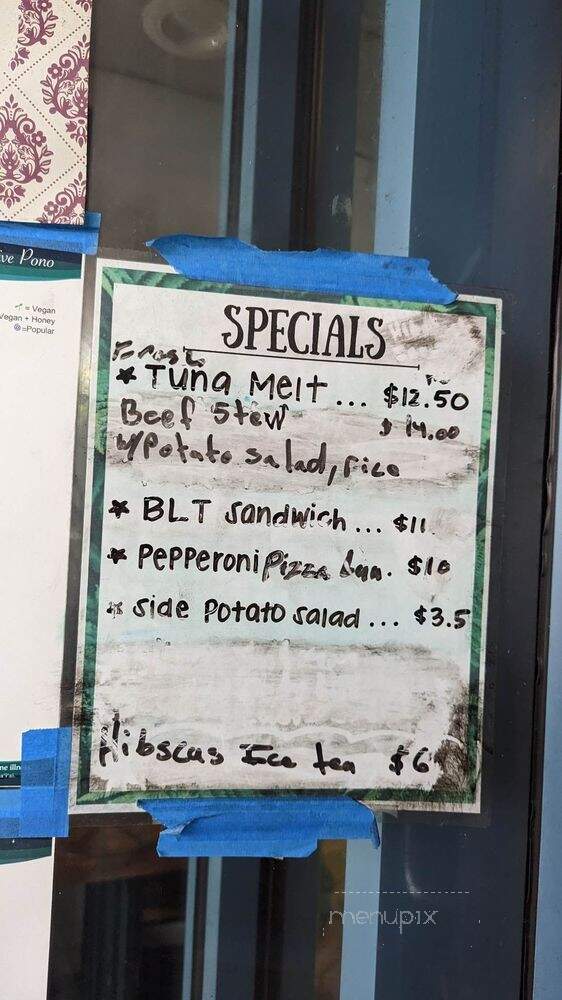 ive Pono
= Vegan
Vegan + Honey
=Popular
SPECIALS
Fresh
* Tuna Melt... $12.50
Beef Stew $ 14.00
w/Potato salad, rice
* BLT sandwich... $11
* Pepperoni Pizza bun. $10
* side Potato salad... $3.5
Hibscus Ice tea $6
ne illn
menupix